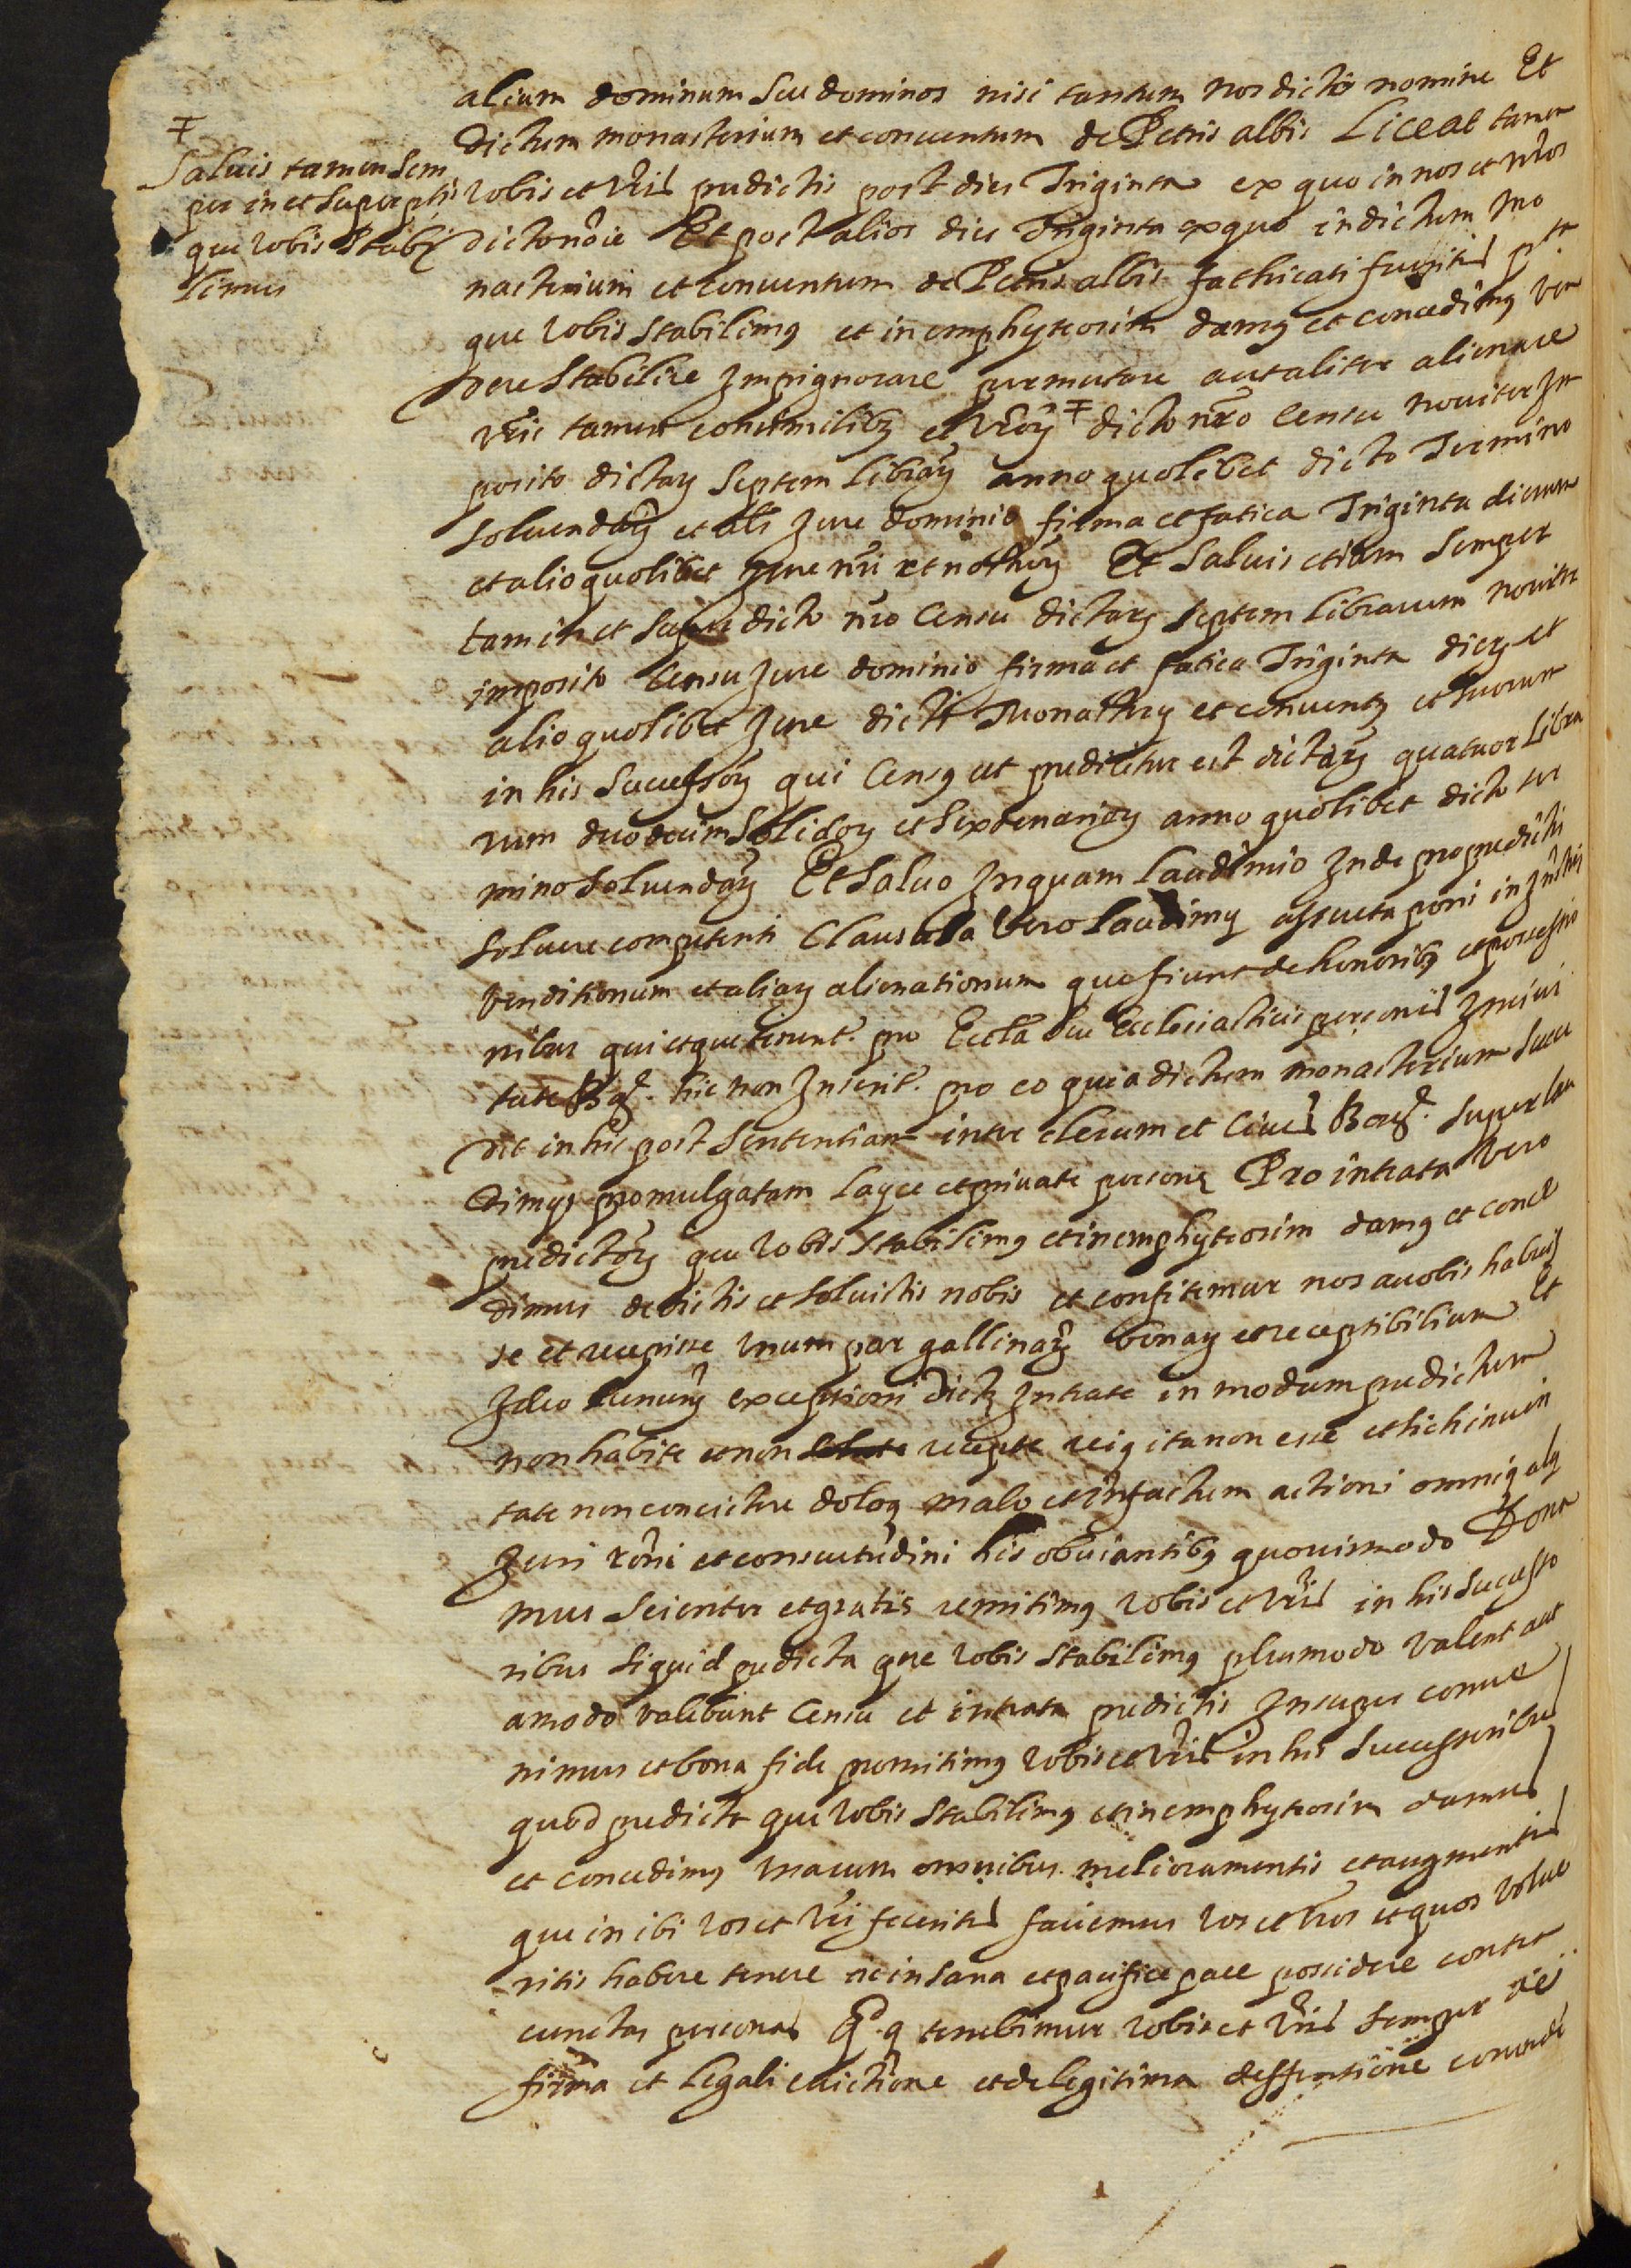 alium dominum seu dominos nisi tantum nos dicto nomine Et
dictum monasterium et conventum de Petris albis Liceat tamen
vobis et vris predictis post dies Triginta ex quo in nos et nros
dicto noie Et post alios dies Triginta ex quo in dictum mo
nasterium et conventum de Petris albis fathicati fueritis pta
que vobis stabilimus et in emphyteosim damus et concedimus ven
dere stabilire Impignorare permutare aut aliter alienare
vris tamen consimilibus et vrorum ‡ dicto nro censu noviter Im
posito dictarum septem librarum anno quolibet dicto Termino
solvendarum et alis Jure dominio firma et fatica Triginta dierum
et alio quolibet Jure nri et nostrorum Et salvis etiam semper
tam in et super dicto nro censu dictarum septem librarum noviter
imposito censu Jure dominio firma et fatica Triginta dierum et
alio quolibet Jure dicti Monasterii et conventus et suorum
in his successorum qui census ut predicitur est dictarum quatuor libra
rum duodecim solidorum et sex denariorum anno quolibet dicto ter
mino solvendarum Et salvo Inquam laudimio Inde pro predictis
solvere competenti Clausula vero laudimii assueta poni in Instris
venditionum et aliarum alienationum que fiunt de honoribus et possessio
nibus qui et que tenentur pro Eccla seu Ecclesiasticis personis In civi
tate Barq. hic non Inseritur pro eo quia dictum monasterium succe
dit in his post sententiam inter clerum et cives Barq. super lau
dimiis promulgatam layce et private persone Pro intrata vero
predictorum que vobis stabilimus et in emphyteosim damus et conce
dimus dedistis et solvistis nobis et confitemur nos a vobis habuis
se et recepisse unum par gallinarum bonarum et receptibilium Et
Ideo renuntiamus exceptioni dicte Intrate in modum predictum
non habite et non recepte reique ita non esse et sic hinc in veri
tate non consistere doloque malo et in factum actioni omnique alii
Juri roni et consuetudini his obviantibus quovismodo Dona
mus scienter et gratis remitimus vobis et vris in his successo
ribus siquid predicta que vobis stabilimus plus modo valent aut
amodo valebunt censu et intrata predictis Insuper conve
nimus et bona fide promitimus vobis et vris in his successoribus
quod predicta que vobis stabilimus et in emphyteosim damus
et concedimus una cum omnibus melioramentis et augmentis
que in ibi vos et vri feceritis faciemus vos et vros et quos volue
ritis habere tenere ac in sana et pacifica pace possidere contra
cunctas personas Et q tenebimur vobis et vris semper de
firma et legali evictione et de legitima deffentione eorumde
‡
Salvis tamen sem
per in et super ptis
que vobis stabi
limus